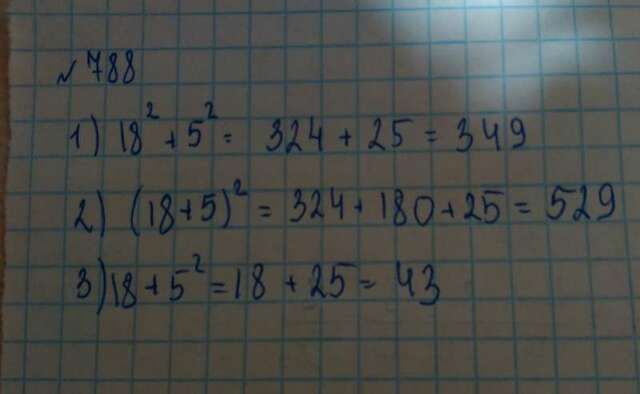 №788
1) 18² + 5² = 324 + 25 = 349
2) (18+5)² = 324 + 180 + 25 = 529
3) 18 + 5² = 18 + 25 = 43